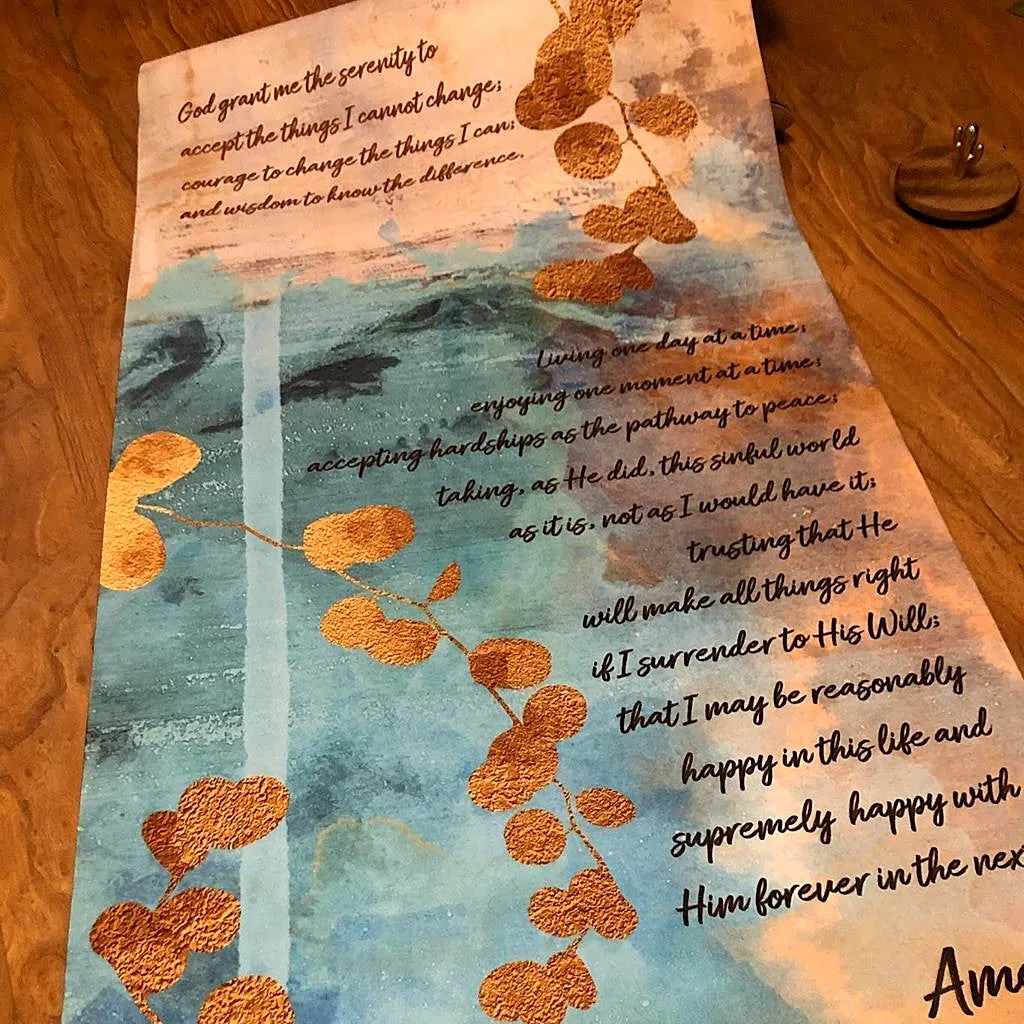 God grant me the serenity to
accept the things I cannot change;
courage to change the things I can;
and wisdom to know the difference.
Living one day at a time;
enjoying one moment at a time;
accepting hardships as the pathway to peace;
taking, as He did, this sinful world
as it is, not as I would have it;
trusting that He
will make all things right
if I surrender to His Will;
that I may be reasonably
happy in this life and
supremely happy with
Him forever in the